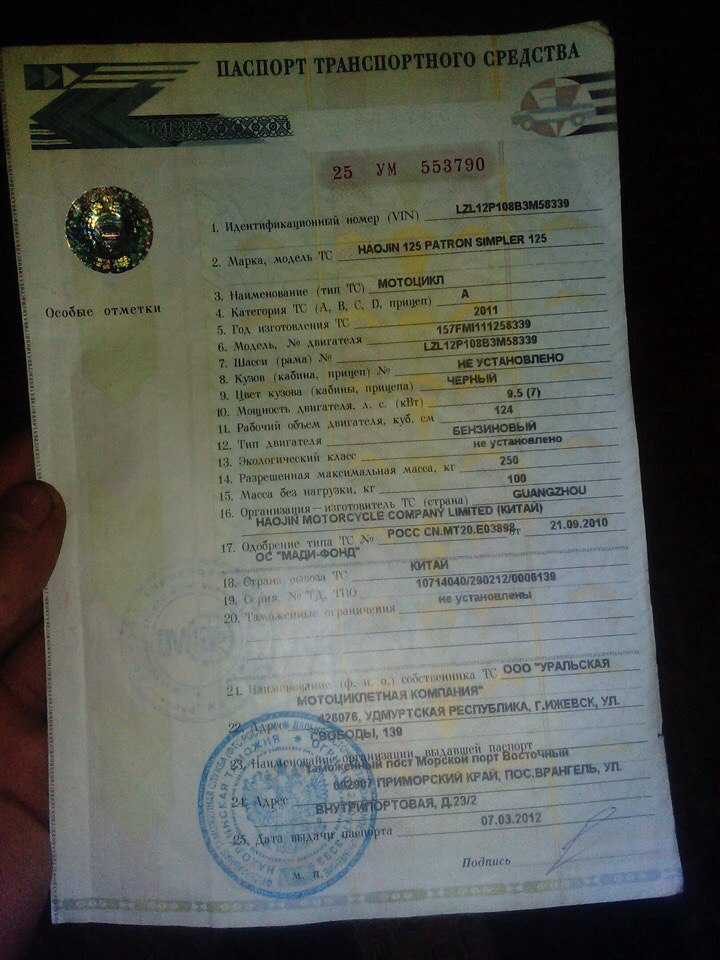 ПАСПОРТ ТРАНСПОРТНОГО СРЕДСТВА
25 УМ 553790
1. Идентификационный номер (VIN) LZL12P108B3M58339
2. Марка, модель ТС HAOJIN 125 PATRON SIMPLER 125
3. Наименование (тип ТС) МОТОЦИКЛ
4. Категория ТС (A, B, C, D, прицеп) A
5. Год изготовления ТС 2011
6. Модель, № двигателя 157FMI111258339
7. Шасси (рама) № LZL12P108B3M58339
8. Кузов (кабина, прицеп) № НЕ УСТАНОВЛЕНО
9. Цвет кузова (кабины, прицепа) ЧЕРНЫЙ
10. Мощность двигателя, л. с. (кВт) 9.5 (7)
11. Рабочий объем двигателя, куб. см 124
12. Тип двигателя БЕНЗИНОВЫЙ
13. Экологический класс не установлено
14. Разрешенная максимальная масса, кг 250
15. Масса без нагрузки, кг 100
16. Организация—изготовитель ТС (страна) GUANGZHOU
HAOJIN MOTORCYCLE COMPANY LIMITED (КИТАЙ)
17. Одобрение типа ТС № РОСС CN.MT20.E03898 от 21.09.2010
ОС "МАДИ-ФОНД"
18. Страна вывоза ТС КИТАЙ
19. Серия, № ТД, ТПО 10714040/290212/0006139
20. Таможенные ограничения не установлены
21. Наименование (ф. и. о.) собственника ТС ООО "УРАЛЬСКАЯ
МОТОЦИКЛЕТНАЯ КОМПАНИЯ"
22. Адрес 426076, УДМУРТСКАЯ РЕСПУБЛИКА, Г.ИЖЕВСК, УЛ.
СВОБОДЫ, 139
23. Наименование организации, выдавшей паспорт
Таможенный пост Морской порт Восточный
24. Адрес 692907 ПРИМОРСКИЙ КРАЙ, ПОС.ВРАНГЕЛЬ, УЛ.
ВНУТРИПОРТОВАЯ, Д.23/2
25. Дата выдачи паспорта 07.03.2012
М. П.
Подпись
Особые отметки